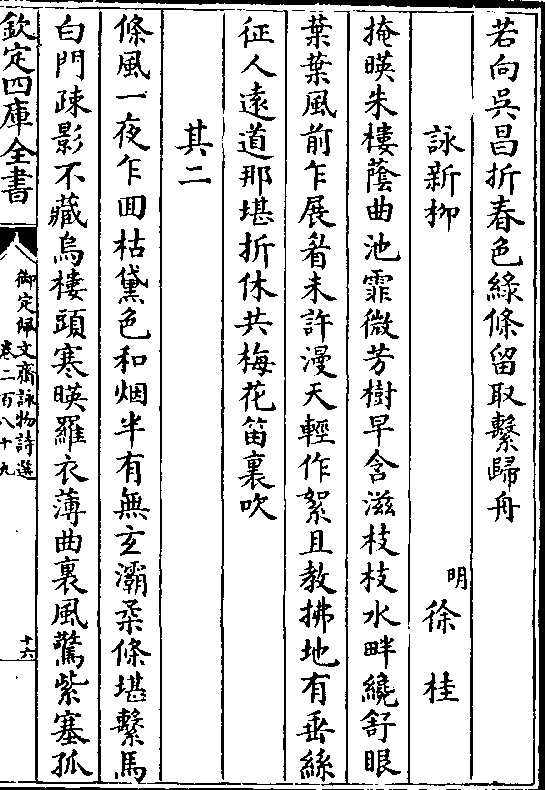 若向吳昌折春色綠條留取繫歸舟
詠新栁
明徐桂
掩暎朱樓蔭曲池霏微芳樹早含滋枝枝水畔纔舒眼
葉葉風前乍展眉未許漫天輕作絮且教拂地有垂絲
征人遠道那堪折休共梅花笛裏吹
其二
條風一夜乍囬枯黛色和烟半有無玄灞柔條堪繫馬
白門疎影不藏烏樓頭寒暎羅衣薄曲裏風驚紫塞孤
欽定四庫全書
御定佩文齋詠物詩選
卷二百八十九
十六